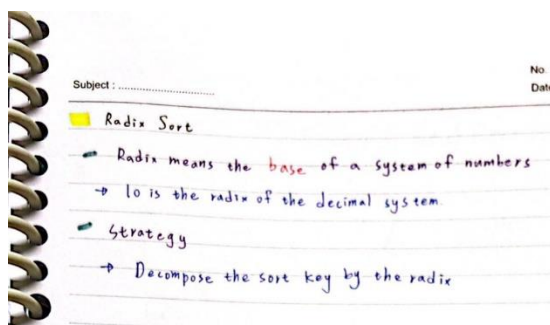 No.
Subject : ..............................
Date
Radix Sort
Radix means the base of a system of numbers
→ 10 is the radix of the decimal system.
Strategy
→ Decompose the sort key by the radix